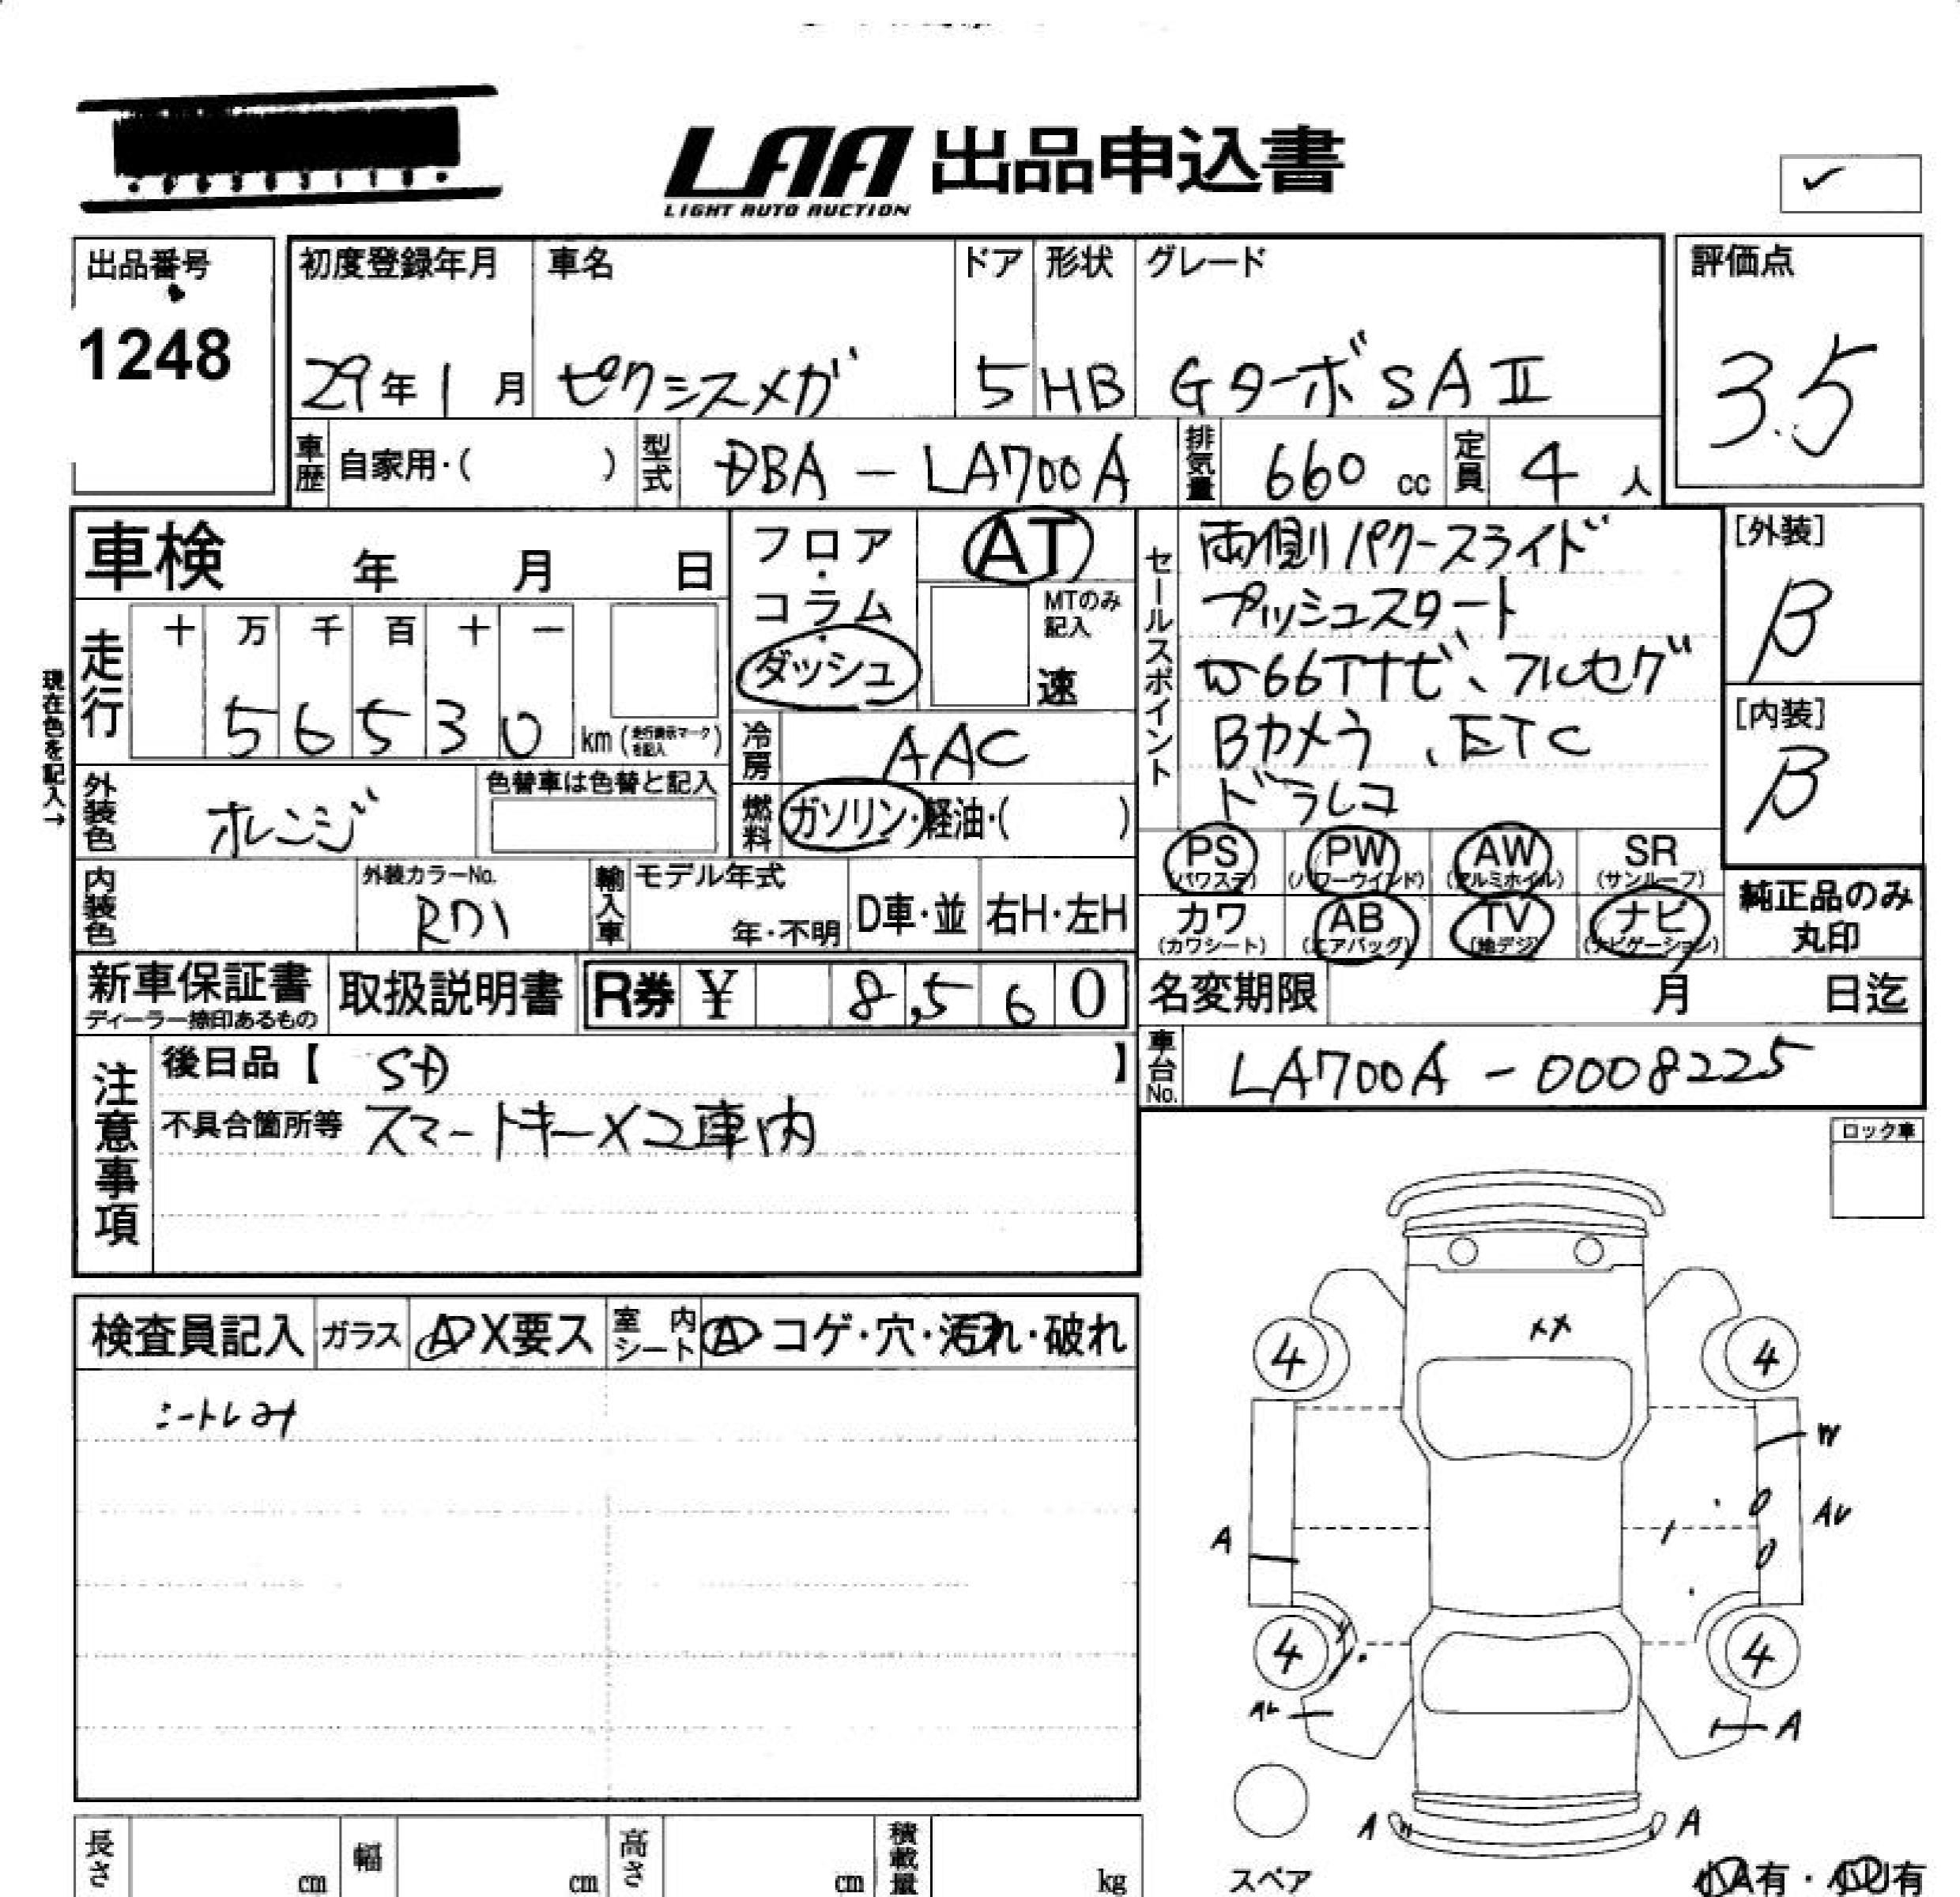 LAA 出品申込書
LIGHT AUTO AUCTION
出品番号
1248
初度登録年月 車名 ドア 形状 グレード 評価点
29年1月 ピクシスメガ 5 HB GターボSAⅡ 3.5
車歴 自家用・( ) 型式 DBA-LA700A 排気量 660cc 定員 4人
車検 年 月 日
走行 十 万 千 百 十 一
56530 km (走行表示マークを記入)
現在色を記入→
外装色 オレンジ 色替車は色替と記入
内装色 外装カラーNo.
RD1
輸入車 モデル年式
年・不明 D車・並 右H・左H
フロア・コラム・ダッシュ
AT
MTのみ記入
速
冷房 AAC
燃料 ガソリン・軽油・( )
セールスポイント
両側パワースライド
プッシュスタート
W66Tナビ、フルセグ
Bカメラ、ETC
ドラレコ
[外装]
B
[内装]
B
PS PW AW SR
(パワステ) (パワーウインド) (アルミホイル) (サンルーフ)
カワ AB TV ナビ
(カワシート) (エアバッグ) (地デジ) (ナビゲーション)
純正品のみ
丸印
新車保証書 取扱説明書 R券 ¥ 8,560
ディーラー捺印あるもの
名変期限 月 日迄
車台No. LA700A-0008225
注意事項
後日品【 SD 】
不具合箇所等 スマートキー×2車内
ロック車
検査員記入 ガラス A X要ス 室内シート A・コゲ・穴・汚れ・破れ
XX
4 4
W
A
4 4
A
A A
スペア
小A有・小U有
長さ cm 幅 cm 高さ cm 積載量 kg